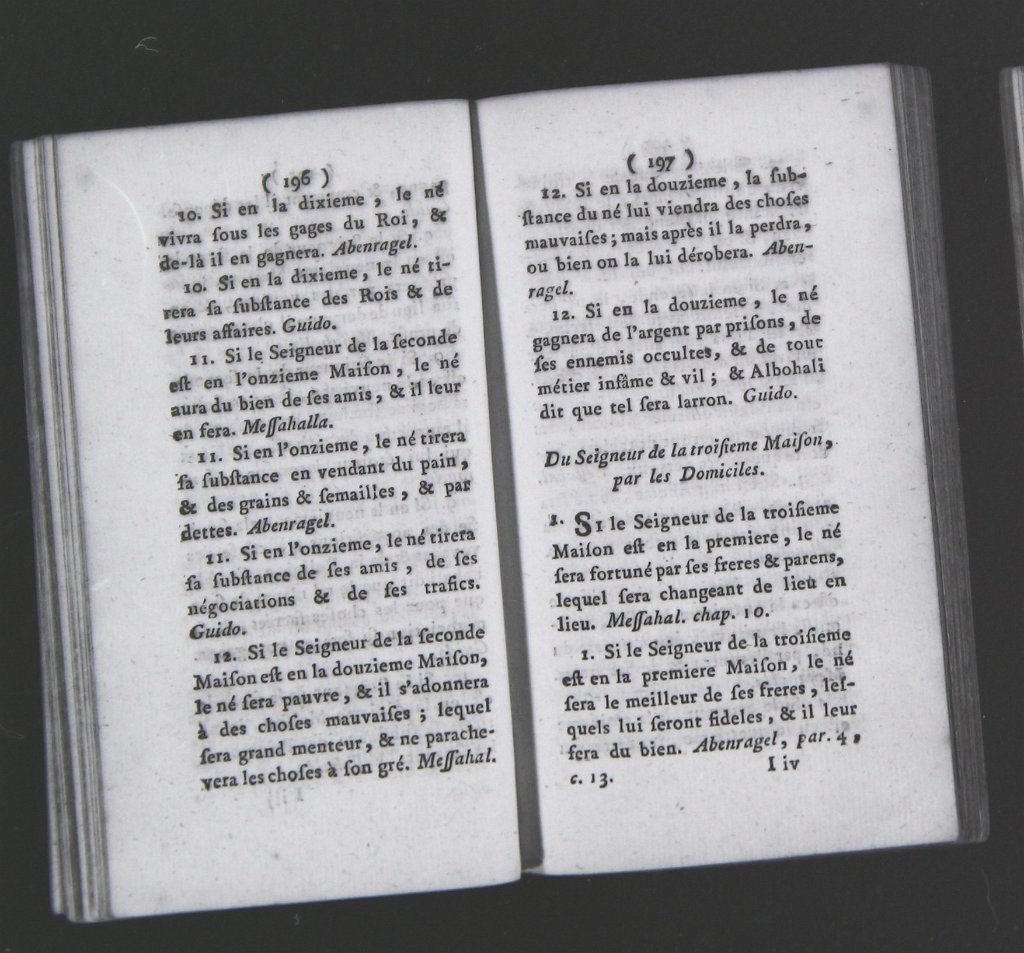 ( 196 )
10. Si en la dixieme, le né
vivra ſous les gages du Roi, &
de-là il en gagnera. Abenragel.
10. Si en la dixieme, le né ti-
rera ſa ſubſtance des Rois & de
leurs affaires. Guido.
11. Si le Seigneur de la ſeconde
eſt en l'onzieme Maiſon, le né
aura du bien de ſes amis, & il leur
en fera. Meſſahalla.
11. Si en l'onzieme, le né tirera
ſa ſubſtance en vendant du pain,
& des grains & ſemailles, & par
dettes. Abenragel.
11. Si en l'onzieme, le né tirera
ſa ſubſtance de ſes amis, de ſes
négociations & de ſes trafics.
Guido.
12. Si le Seigneur de la ſeconde
Maiſon eſt en la douzieme Maiſon,
le né ſera pauvre, & il s'adonnera
à des choſes mauvaiſes; lequel
ſera grand menteur, & ne parache-
vera les choſes à ſon gré. Meſſahal.
( 197 )
12. Si en la douzieme, la ſub-
ſtance du né lui viendra des choſes
mauvaiſes; mais après il la perdra,
ou bien on la lui dérobera. Aben-
ragel.
12. Si en la douzieme, le né
gagnera de l'argent par priſons, de
ſes ennemis occultes, & de tout
métier infâme & vil; & Albohali
dit que tel ſera larron. Guido.
Du Seigneur de la troiſieme Maiſon,
par les Domiciles.
1. SI le Seigneur de la troiſieme
Maiſon eſt en la premiere, le né
ſera fortuné par ſes freres & parens,
lequel ſera changeant de lieu en
lieu. Meſſahal. chap. 10.
1. Si le Seigneur de la troiſieme
eſt en la premiere Maiſon, le né
ſera le meilleur de ſes freres, leſ-
quels lui ſeront fideles, & il leur
fera du bien. Abenragel, par. 4,
c. 13.
I iv